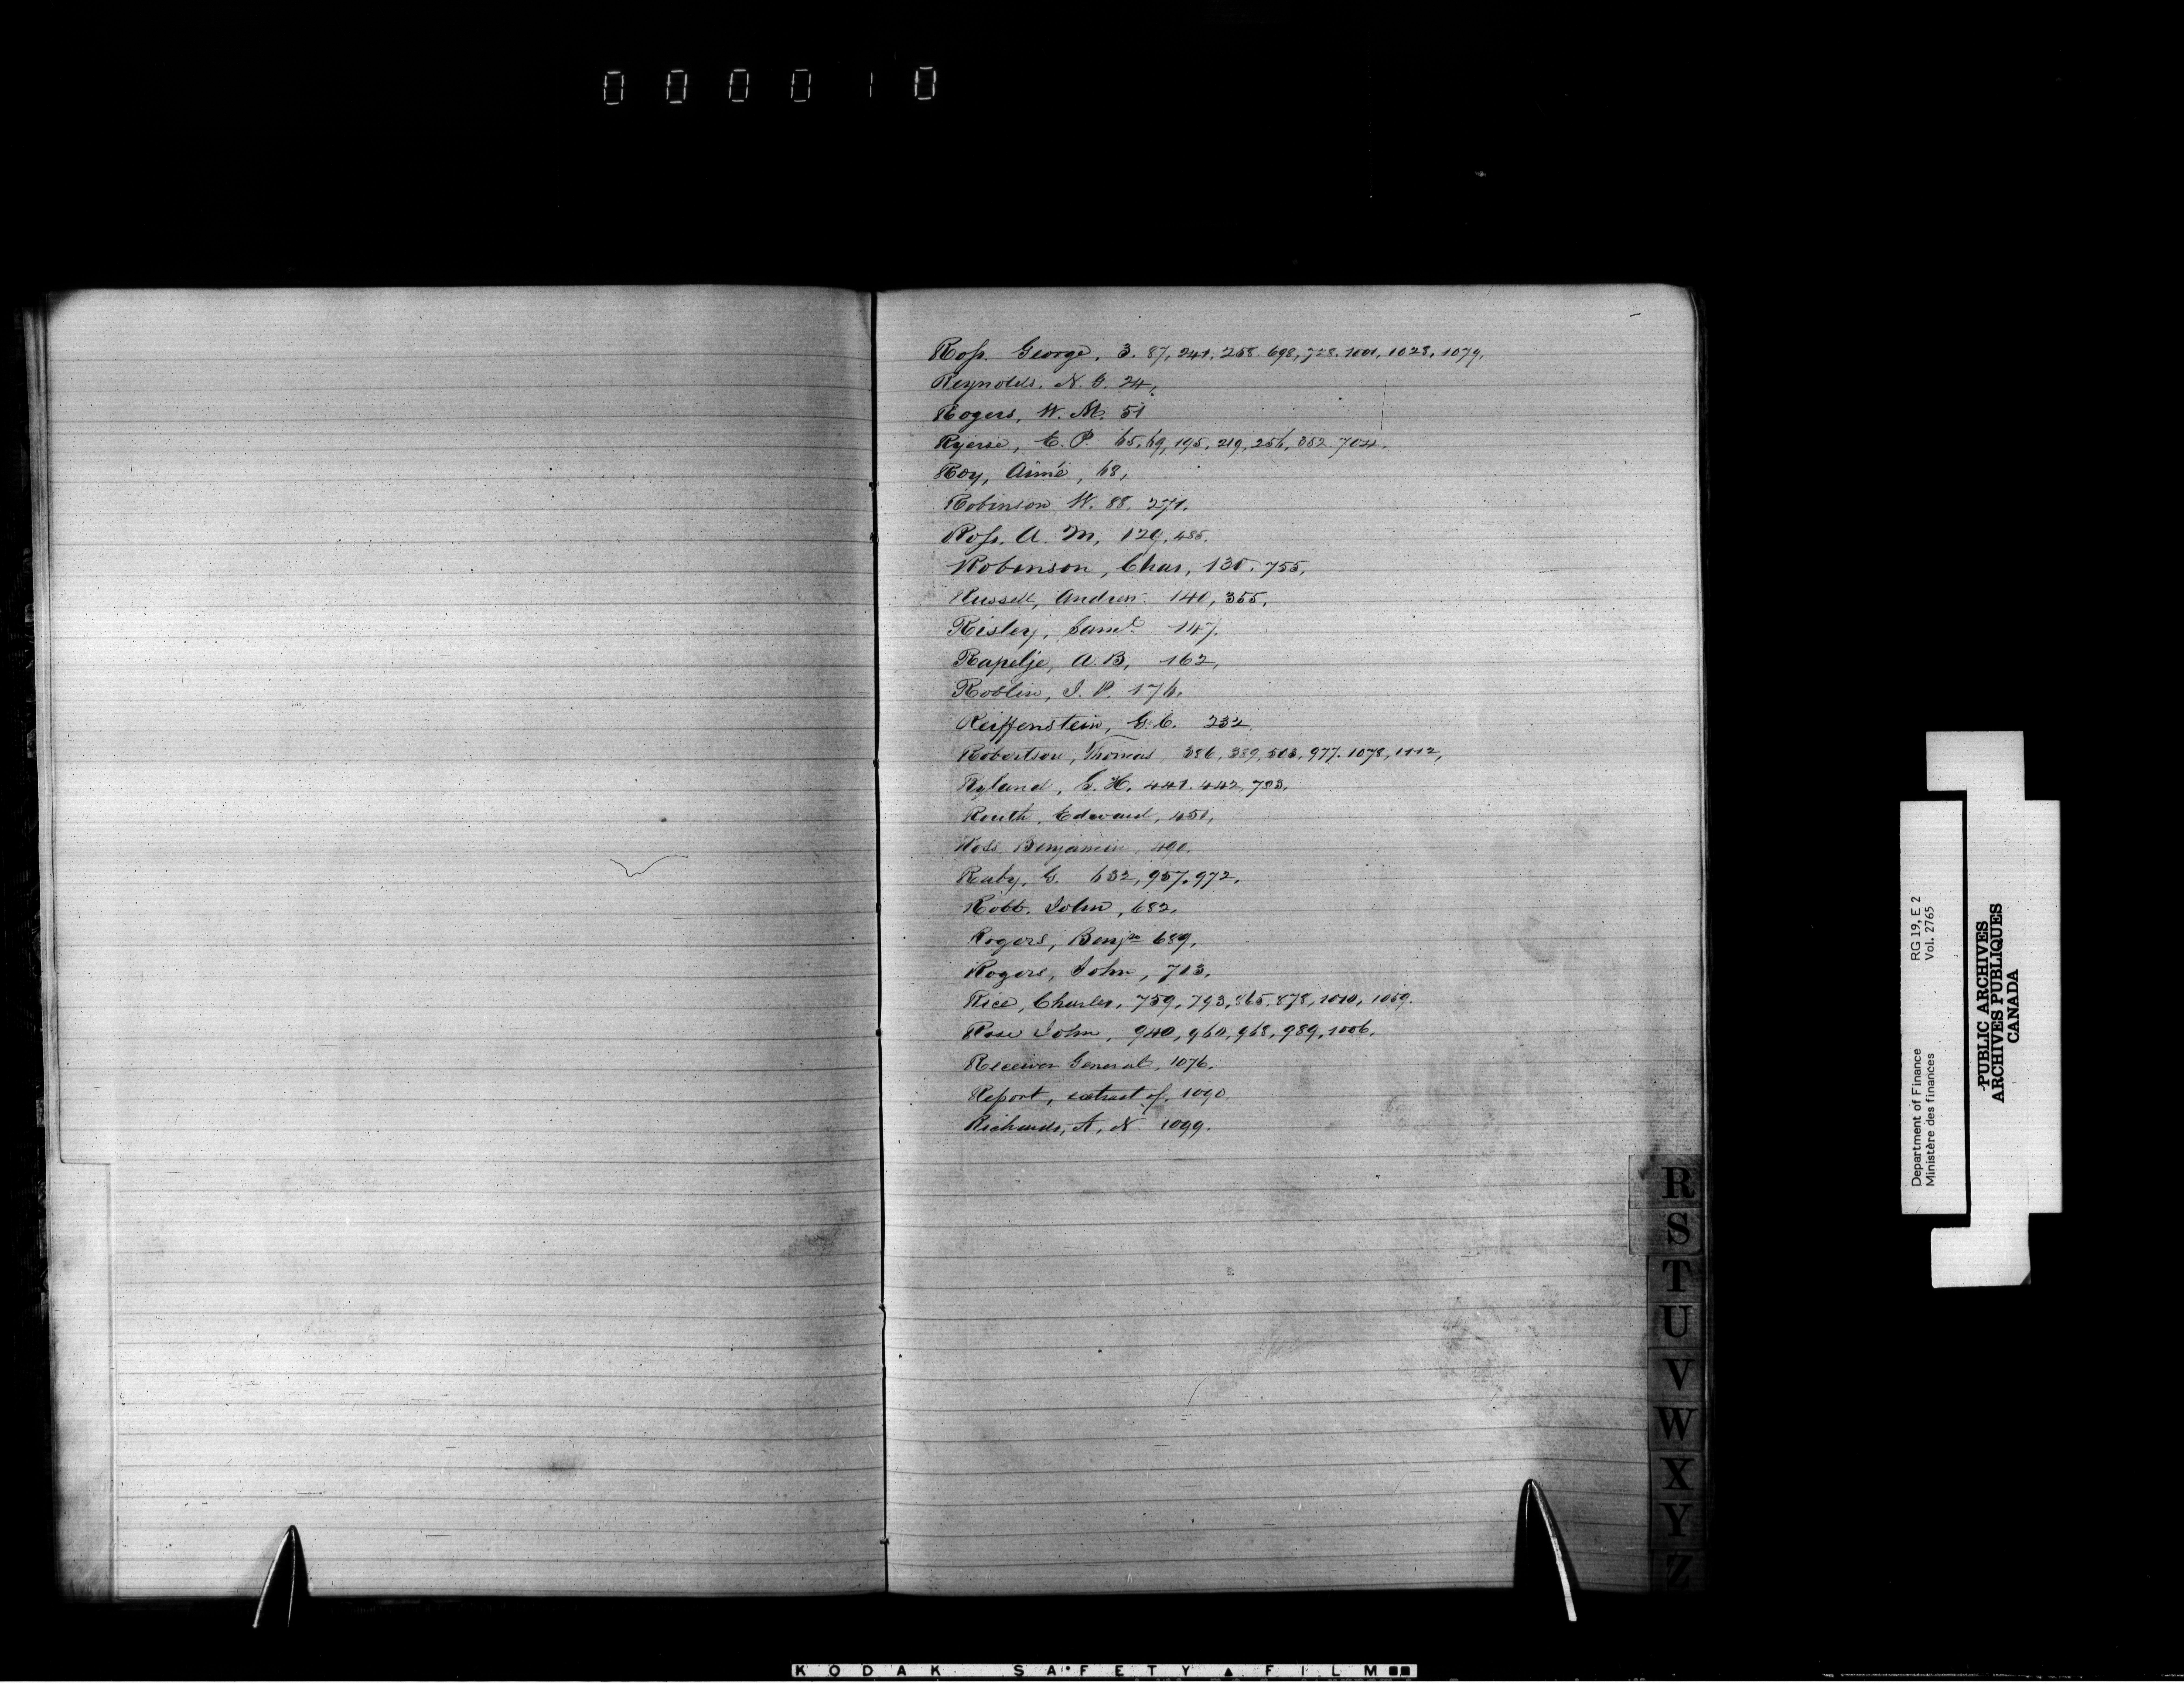 000010
Ross. George, 3. 87, 241, 258. 698, 728. 1001, 1028, 1079,
Reynolds, N. G. 24,
Rogers, W. M. 51
Ryerse, E. P. 65, 69, 195, 219, 256, 352. 704.
Roy, Aimé, 68,
Robinson W. 88. 271.
Ross. A. M, 129, 485.
Robinson, Chas, 130. 755,
Russell, Andrew 140, 355,
Risley, Saml 147.
Rapelje, A. B, 162,
Roblin, J. P. 176.
Reiffenstein, G. C. 232
Robertson, Thomas 386, 389, 503, 977. 1078, 1112,
Ryland, G. H. 441. 442, 783,
Routh, Edward, 451,
Ross Benjamin, 490,
Raby, G. 632, 957, 972,
Robb, John, 682,
Rogers, Benjn 689,
Rogers, John, 713,
Rice, Charles, 759, 793, 865. 878, 1010, 1059.
Rose John, 940, 960, 968, 989, 1006,
Receiver General, 1076,
Report, extract of, 1090
Richards, A, N. 1099.
R
S
T
U
V
W
X
Y
Z
Department of Finance RG 19, E 2
Ministère des finances Vol. 2765
PUBLIC ARCHIVES
ARCHIVES PUBLIQUES
CANADA
KODAK SAFETY FILM